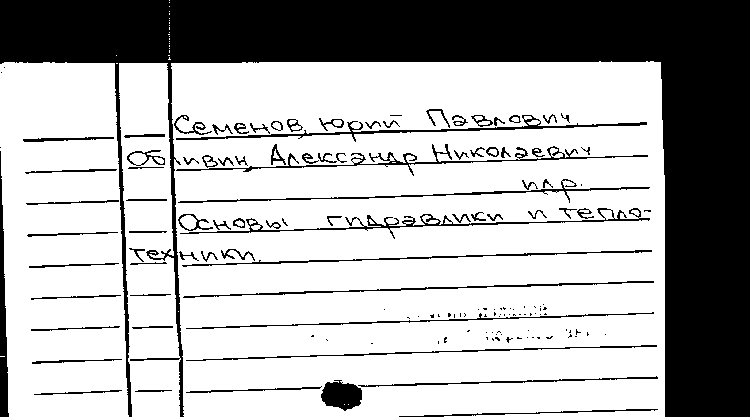 Семенов, Юрий Павлович
Обливин, Александр Николаевич
и др.
Основы гидравлики и тепло-
техники.